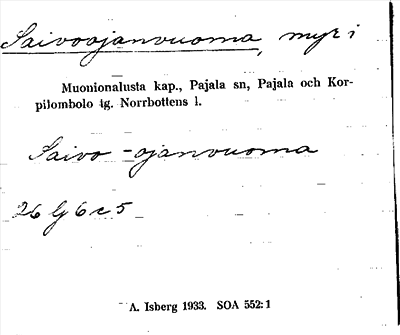 Saivoojanvuoma, myr i
Muonionalusta kap., Pajala sn, Pajala och Kor-
pilombolo tg. Norrbottens l.
Saivo-ojanvuoma
26 Lj 6 c 5
A. Isberg 1933. SOA 552:1